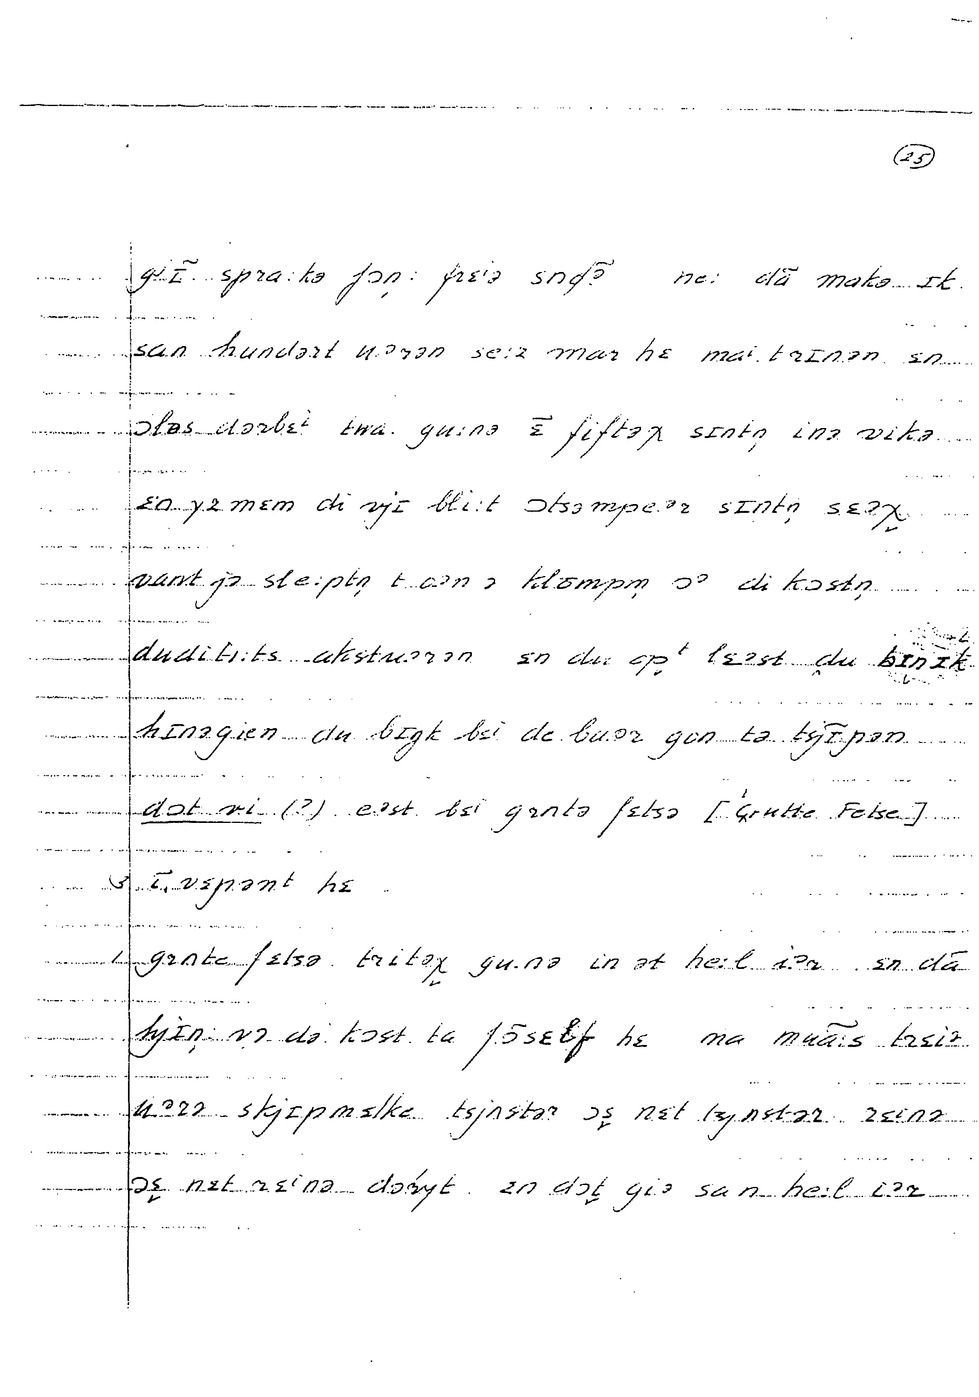 (25)
gjɪ̄ spra.kə fɔn: frɛiə sndə̄ ne: dā makə ɪk
san hundərt uərən se:z mar hɛ mai trɪnən ɛn
ɔləs dərbɛi twa. gu:nə ɛ̄ fiftəχ sɪntn̩ inə vikə
ɛn yz mɛm di vjɪ bli:t ɔtsəmpeər sɪntn̩ sɛəχ
vant jə sle:ptn̩ t ɔən ə klompm̩ ɔə di kɔstn̩
du diti:ts akstuərən ɛn du opt lɛəst du bɪnɪk
hɪnəgien du bɪŋk bɛi de buər gon tə tsjɪ̄pən
dɔt vi (?) eəst bɛi grʌtə fɛtsə ['Grutte Fetse]
3 ɪ̄. vɛpənt hɛ
1 grʌtə fɛtsə tritəχ gu.nə in ət he:l iər ɛn dā
hjɪn: və də kɔst ta fōsɛlf hɛ ma muā:s trɛiə
uərə skjɪpmɛlkə tsjʌstər ɔɛ nɛt tsjʌstər rɛinə
ɔɛ nɛt rɛinə dəryt ɛn dɔt giə sa n he:l iər